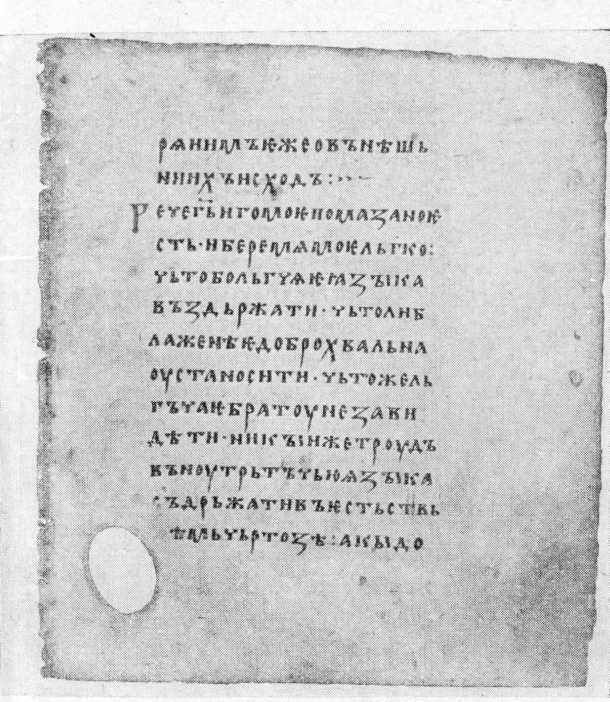 рѧнимлъѥжеовънѣшь
ниихъисходъ:·~—
Речегъ҃игомоѥпомазаноѥ
сть·ибремѧмоѥльгко:
чьтобольгчѧѥꙗзꙑка
въздьржати·чьтолиб
лаженѣѥдоброхвальна
оустаносити·чьтожель
гъчаѥбратоунезави
дѣти·никꙑижетроудъ
въноутрьтъчьюѧзꙑка
съдрьжативъѥстьствь
ѣмьчьртозѣ:акыдо